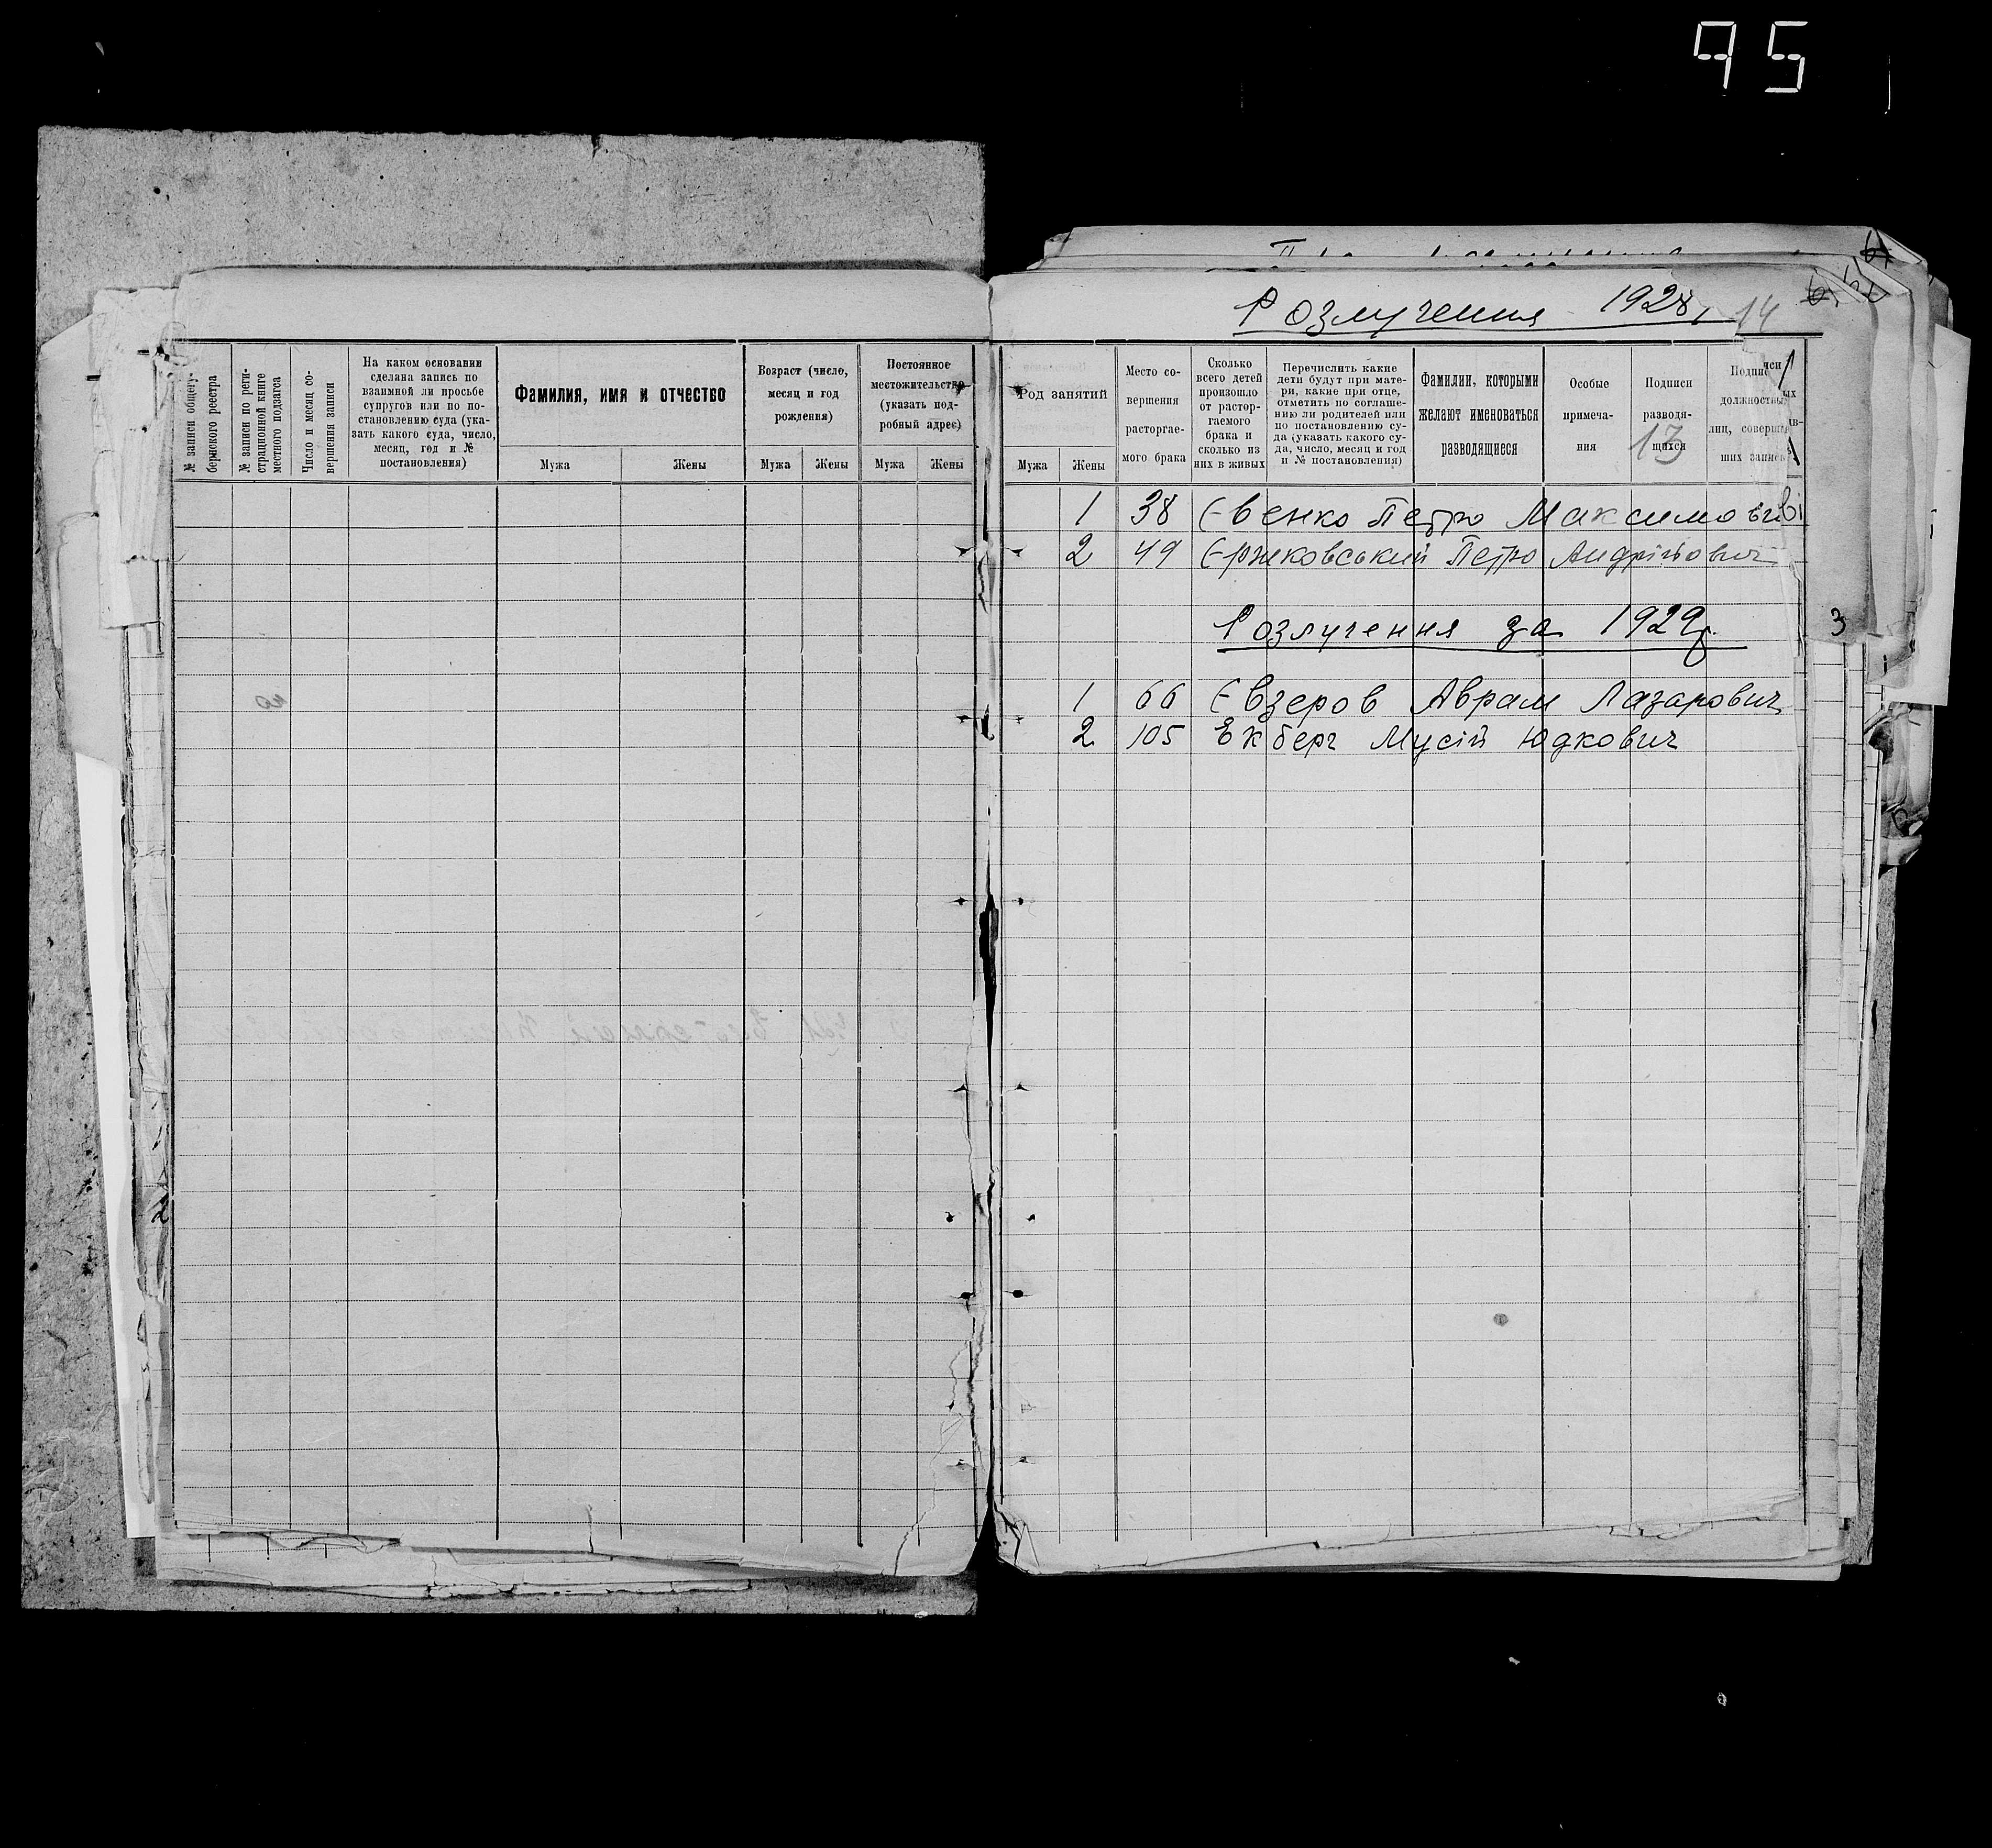 95
Розлучення 1928,
14
№ записи общегу-
бернского реестра
№ записи по реги-
страционной книге
местного подзагса
Число и месяц со-
вершения записи
На каком основании
сделана запись по
взаимной ли просьбе
супругов или по по-
становлению суда (ука-
зать какого суда, число,
месяц, год и №
постановления)
Фамилия, имя и отчество
Мужа Жены
Возраст (число,
месяц и год
рождения)
Мужа Жены
Постоянное
местожительство
(указать под-
робный адрес)
Мужа Жены
Род занятий
Мужа Жены
Место со-
вершения
расторгае-
мого брака
Сколько
всего детей
произошло
от растор-
гаемого
брака и
сколько из
них в живых
Перечислить какие
дети будут при мате-
ри, какие при отце,
отметить по соглаше-
нию ли родителей или
по постановлению су-
да (указать какого су-
да, число, месяц и год
и № постановления)
Фамилии, которыми
желают именоваться
разводящиеся
Особые
примеча-
ния
Подписи
разводя-
щихся
13
Подписи
должностных
лиц, соверши
ших запись
1 38 Євенко Петро Максимович
2 49 Єржковський Петро Андрійович
Розлучення за 1929р.
3
1 66 Євзеров Аврам Лазарович
2 105 Екберг Мусій Юдкович